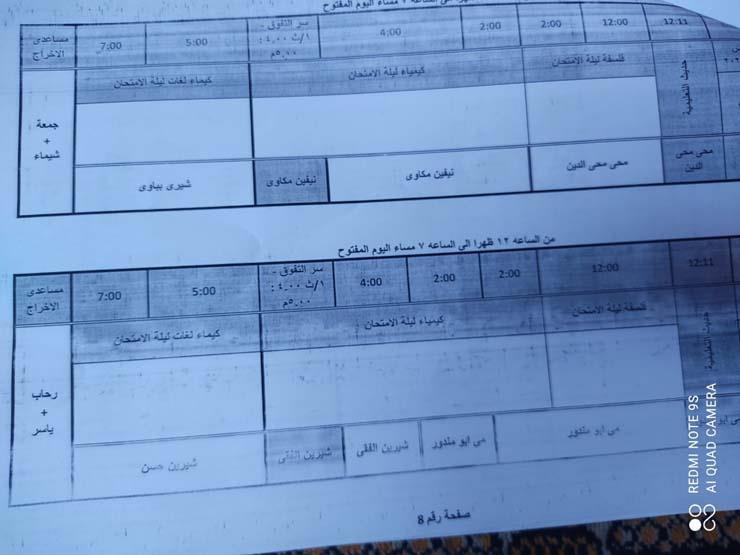 مساء اليوم المفتوح
12:11
12:00
2:00
2:00
4:00
سر التفوق -
١/ث ٤,٠٠ :
٥,٠٠م
5:00
7:00
مساعدى
الاخراج
حديث التعليمية
فلسفة ليلة الامتحان
كيمياء ليلة الامتحان
كيماء لغات ليلة الامتحان
جمعة
+
شيماء
محى محى
الدين
محى محى الدين
نيفين مكاوى
نيفين مكاوى
شيرى بباوى
من الساعه ١٢ ظهرا الى الساعه ٧ مساء اليوم المفتوح
12:11
12:00
2:00
2:00
4:00
سر التفوق -
١/ث ٤,٠٠ :
٥,٠٠م
5:00
7:00
مساعدى
الاخراج
حديث التعليمية
فلسفة ليلة الامتحان
كيمياء ليلة الامتحان
كيماء لغات ليلة الامتحان
رحاب
+
ياسر
مى ابو
مى ابو مندور
مى ابو مندور
شيرين الفقى
شيرين الفقى
شيرين حسن
صفحة رقم 8
REDMI NOTE 9S
AI QUAD CAMERA